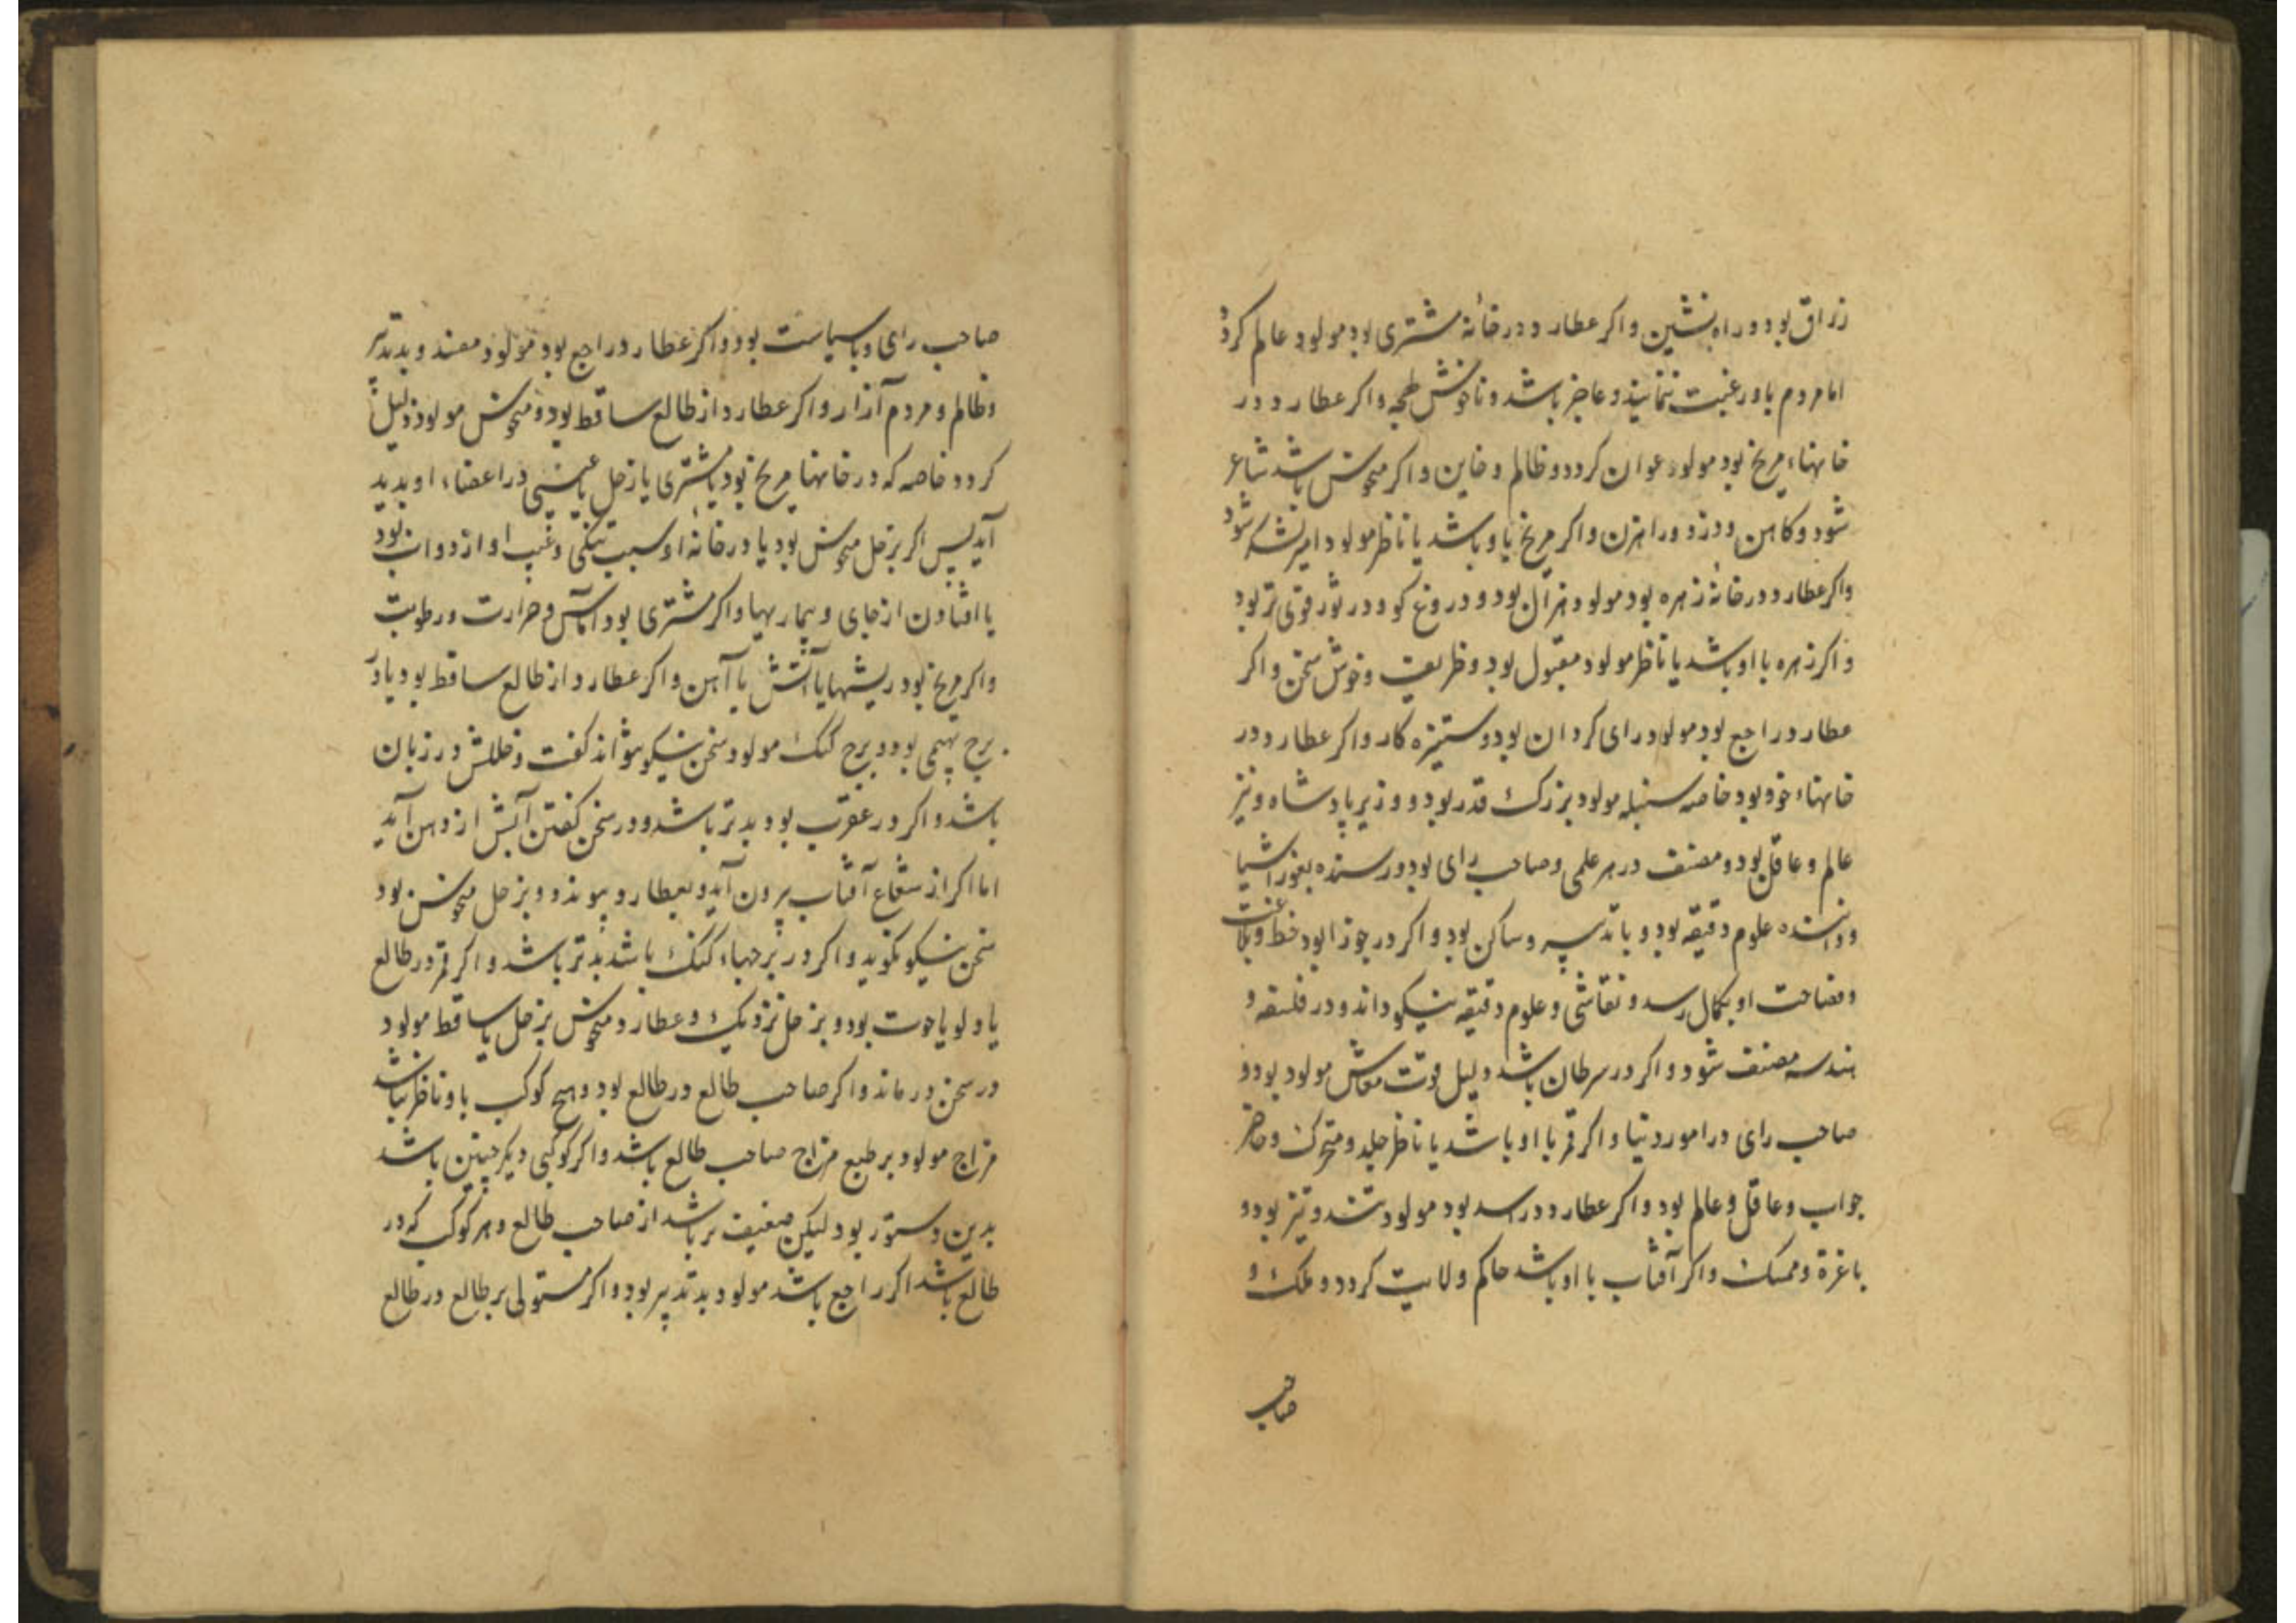 زراق بود و راه‌نشین و اکر عطارد در خانهٔ مشتری بود مولود عالم کردد
اما مردم باو رغبت ننمایند و عاجز باشد و ناخوش لهجه و اکر عطارد در
خانهاء مریخ بود مولود عوان کردد و ظالم و خاین و اکر منحوس باشد شاعر
شود و کاهن و دزد و راهزن و اکر مریخ باو باشد یا ناظر مولود امیر لشکر شود
واکر عطارد در خانهٔ زهره بود مولود هزال بود و دروغ کو و در ثور قوی تر بود
و اکر زهره با او باشد یا ناظر مولود مقبول بود و ظریف و خوش سخن و اکر
عطارد راجع بود مولود رای کردان بود و ستیزه کار و اکر عطارد در
خانهاء خود بود خاصه سنبله مولود بزرک قدر بود و وزیر پادشاه و نیز
عالم و عاقل بود و مصنف در هر علمی و صاحب رای بود و رسنده بغور اشیا
و داننده علوم دقیقه بود و با تدبیر و ساکن بود و اکر در جوزا بود خط و بلاغت
و فصاحت او بکمال رسد و نقاشی و علوم دقیقه نیکو داند و در فلسفه و
هندسه مصنف شود و اکر در سرطان باشد دلیل قوت معاش مولود بود و
صاحب رای در امور دنیا و اکر قمر با او باشد یا ناظر جلد و متحرک و حاضر
جواب و عاقل و عالم بود و اکر عطارد در اسد بود مولود تند و تیز بود و
با غرة و ممسک و اکر آفتاب با او باشد حاکم ولایت کردد و ملک و
صاحب
صاحب رای و با سیاست بود و اکر عطارد راجع بود مولود مفسد و بد تدبیر
و ظالم و مردم آزار و اکر عطارد از طالع ساقط بود و منحوس مولود ذلیل
کردد خاصه که در خانهاء مریخ بود یا مشتری یا زحل یا عیبی در اعضاء او بدید
آید پس اکر بزحل منحوس بود یا در خانهٔ او سبب تنکی و عیب او از دواب بود
یا افتادن از جای و بیماریها و اکر مشتری بود آماس و حرارت و رطوبت
و اکر مریخ بود ریشها یا آتش یا آهن و اکر عطارد از طالع ساقط بود یا در
برج بهیمی بود و برج کنک مولود سخن نیکو نتواند کفت و خللش در زبان
باشد و اکر در عقرب بود بدتر باشد و در سخن کفتن آبش از دهن آید
اما اکر از شعاع آفتاب بیرون آید و بعطارد پیوندد و بزحل منحوس بود
سخن نیکو نکوید و اکر در برجهاء کنک باشد بدتر باشد و اکر قمر در طالع
یا دلو یا حوت بود و بزحل نزدیک و عطارد منحوس بزحل یا ساقط مولود
در سخن در ماند و اکر صاحب طالع در طالع بود و هیچ کوکب باو ناظر نباشد
مزاج مولود بر طبع مزاج صاحب طالع باشد و اکر کوکبی دیکر چنین باشد
بدین دستور بود لیکن ضعیف تر باشد از صاحب طالع و هر کوکب که در
طالع باشد اکر راجع باشد مولود بد تدبیر بود و اکر مستولی بر طالع در طالع